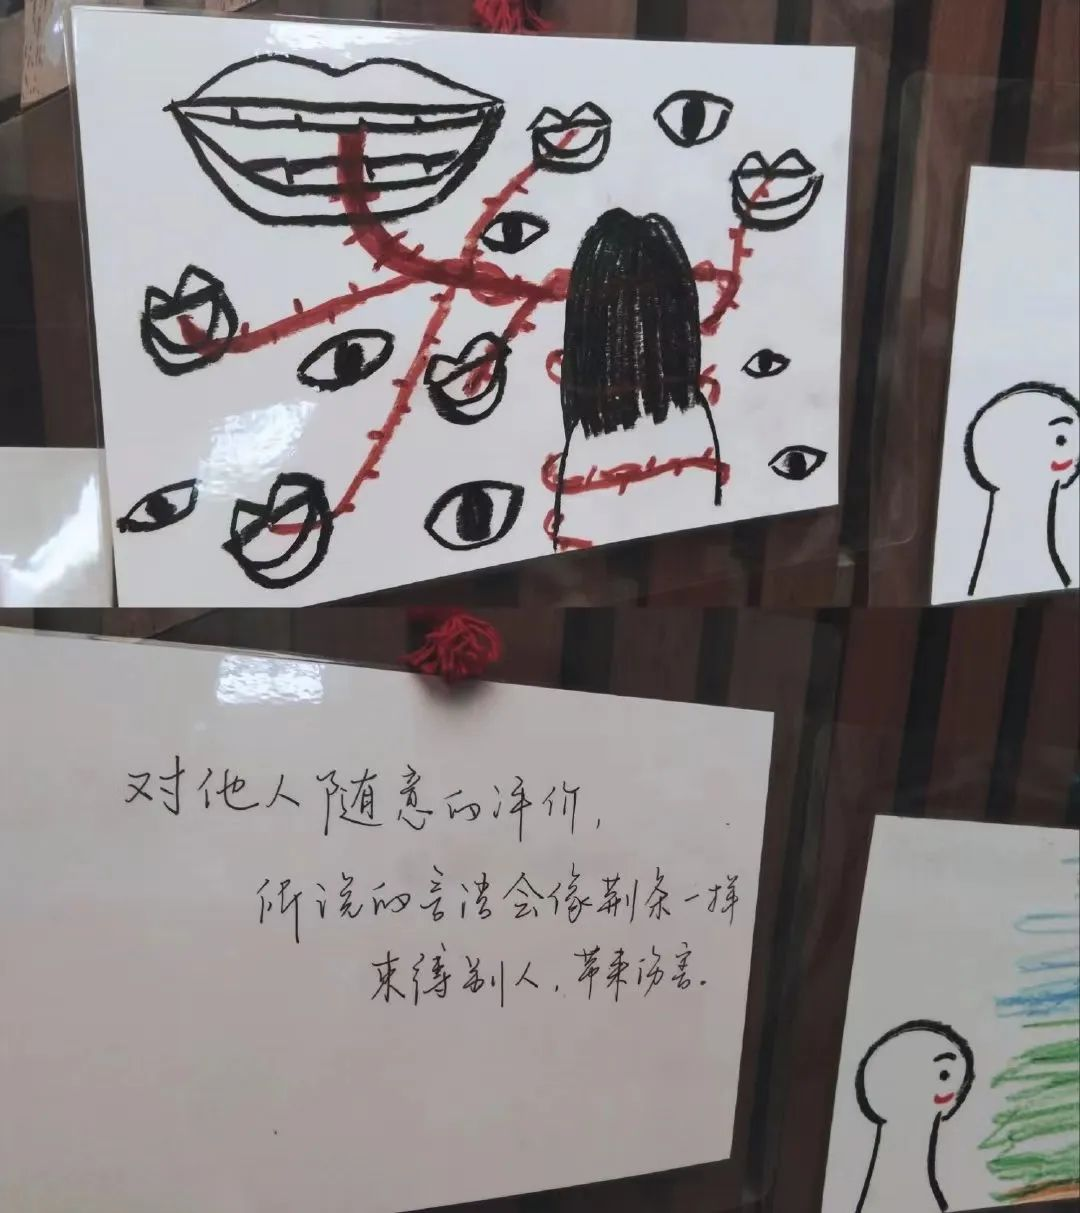 对他人随意的评价，
所说的言语会像荆条一样
束缚别人，带来伤害。